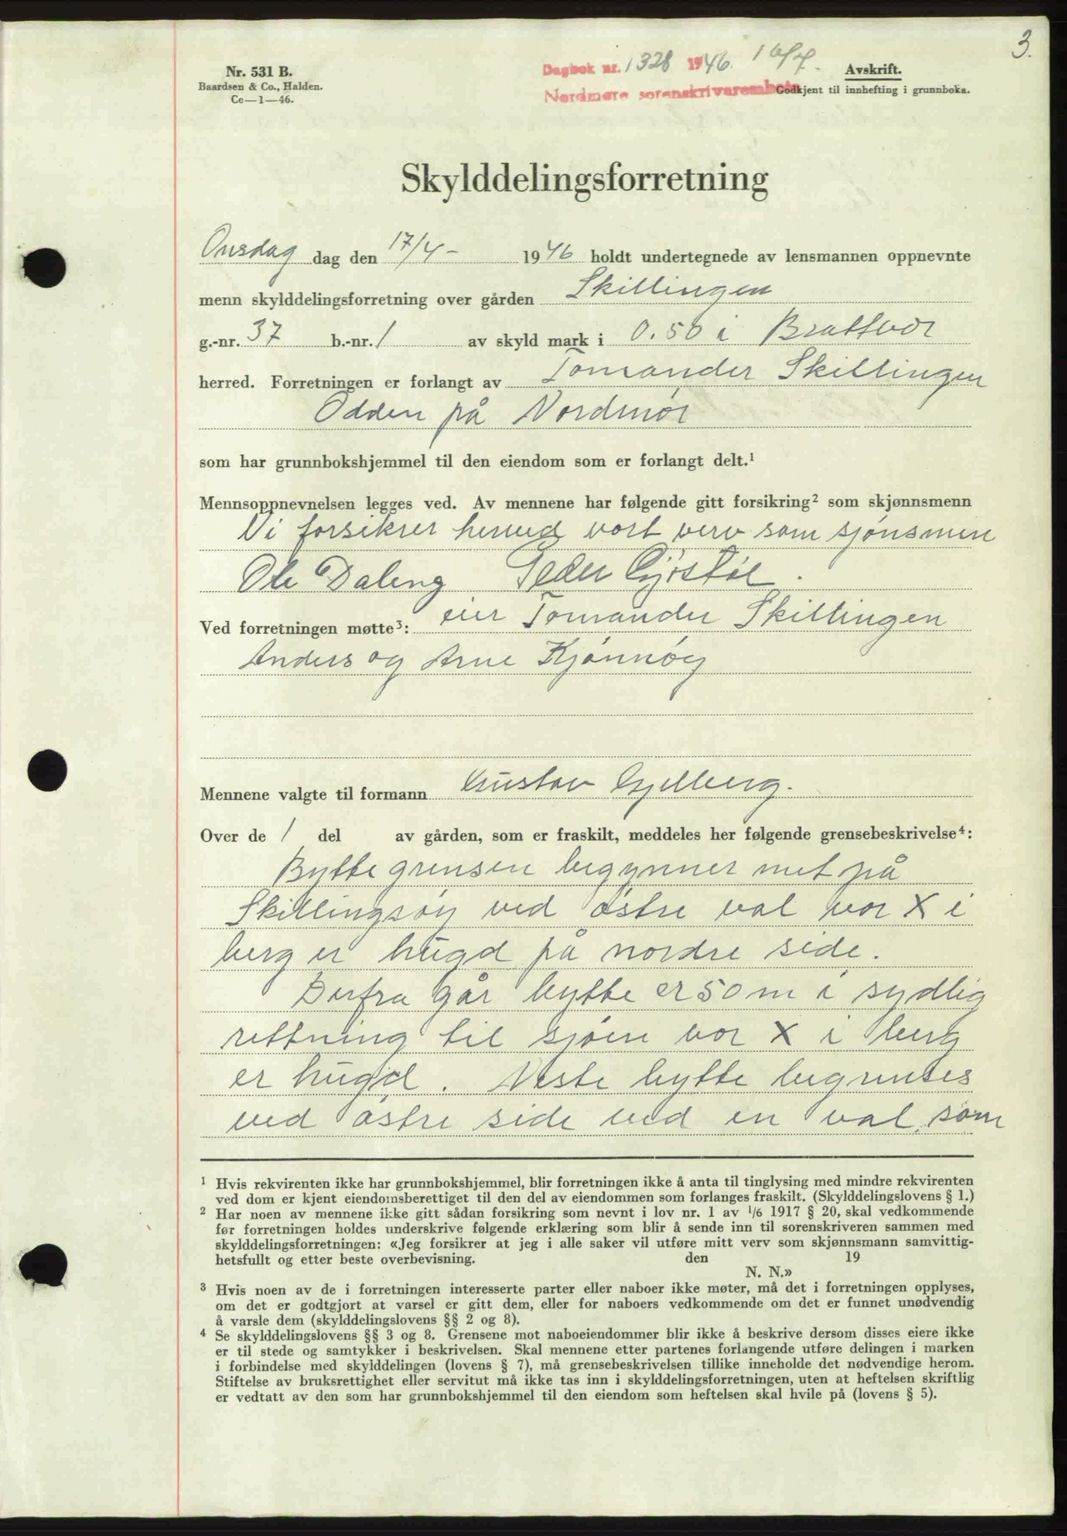 3.
Nr. 531 B.
Baardsen & Co., Halden.
Ce—1—46.
Dagbok nr. 1328 1946 16/7.
Nordmøre sorenskriverembete
Avskrift.
Godkjent til innhefting i grunnboka.
Skylddelingsforretning
Onsdag dag den 17/4- 1946 holdt undertegnede av lensmannen oppnevnte
menn skylddelingsforretning over gården Skillingen
g.-nr. 37 b.-nr. 1 av skyld mark i 0.50 i Brattvær
herred. Forretningen er forlangt av Tomander Skillingen
Odden på Nordmør
som har grunnbokshjemmel til den eiendom som er forlangt delt.¹
Mennsoppnevnelsen legges ved. Av mennene har følgende gitt forsikring² som skjønnsmenn
Vi forsikrer herved vort verv som sjønsmen
Ole Daling Peder Gjøstøl.
Ved forretningen møtte³: eier Tomander Skillingen
Anders og Arne Kjønnøy
Mennene valgte til formann Gustav Gjelberg.
Over de 1 del av gården, som er fraskilt, meddeles her følgende grensebeskrivelse⁴:
Byttegrensen begynner met på
Skillingsøy ved østre val vor X i
berg er hugd på nordre side.
Derfra går bytte er 50 m i sydlig
rettning til sjøen vor X i berg
er hugd. Neste bytte begrenses
ved østre side ved en val, som
¹ Hvis rekvirenten ikke har grunnbokshjemmel, blir forretningen ikke å anta til tinglysing med mindre rekvirenten
ved dom er kjent eiendomsberettiget til den del av eiendommen som forlanges fraskilt. (Skylddelingslovens § 1.)
² Har noen av mennene ikke gitt sådan forsikring som nevnt i lov nr. 1 av ¹/6 1917 § 20, skal vedkommende
før forretningen holdes underskrive følgende erklæring som blir å sende inn til sorenskriveren sammen med
skylddelingsforretningen: «Jeg forsikrer at jeg i alle saker vil utføre mitt verv som skjønnsmann samvittig-
hetsfullt og etter beste overbevisning. den 19
N. N.»
³ Hvis noen av de i forretningen interesserte parter eller naboer ikke møter, må det i forretningen opplyses,
om det er godtgjort at varsel er gitt dem, eller for naboers vedkommende om det er funnet unødvendig
å varsle dem (skylddelingslovens §§ 2 og 8).
⁴ Se skylddelingslovens §§ 3 og 8. Grensene mot naboeiendommer blir ikke å beskrive dersom disses eiere ikke
er til stede og samtykker i beskrivelsen. Skal mennene etter partenes forlangende utføre delingen i marken
i forbindelse med skylddelingen (lovens § 7), må grensebeskrivelsen tillike inneholde det nødvendige herom.
Stiftelse av bruksrettighet eller servitut må ikke tas inn i skylddelingsforretningen, uten at heftelsen skriftlig
er vedtatt av den som har grunnbokshjemmel til den eiendom som heftelsen skal hvile på (lovens § 5).